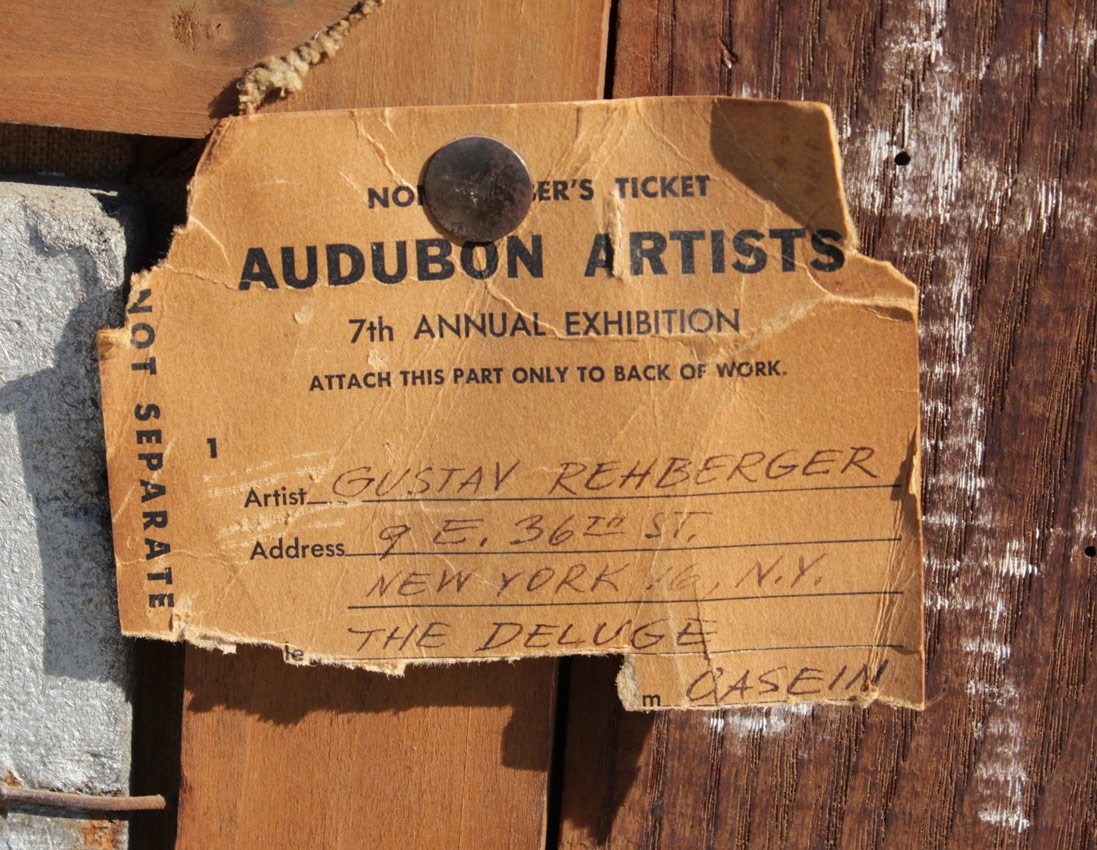 NO ER'S TICKET
AUDUBON ARTISTS
7th ANNUAL EXHIBITION
ATTACH THIS PART ONLY TO BACK OF WORK.
1
Artist GUSTAV REHBERGER
Address 9 E. 36TH ST.
NEW YORK 16, N.Y.
le THE DELUGE
m CASEIN
NOT SEPARATE